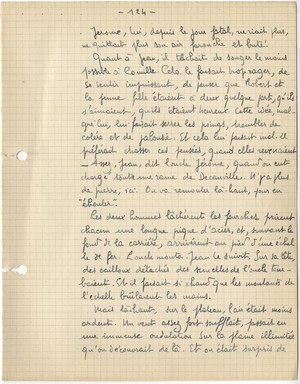 - 124 -
Jérome, lui, depuis le jour fatal, ne riait plus,
ne quittait plus son air farouche et buté.
Quant à Jean, il tâchait de songer le moins
possible à Camille. Cela le faisait trop rager, de
se sentir impuissant, de penser que Robert et
la jeune fille étaient à deux quelque part, qu'ils
s'aimaient, qu'ils étaient heureux. Cette idée, mal-
gré lui, lui faisait serrer les poings, trembler de
colère et de jalousie. Et cela lui faisait mal. Il
préférait chasser ces pensées, quand elles revenaient
- Assez, Jean, dit l'oncle Jérôme, quand on eut
chargé toute une rame de Decauville. Il y a plus
de pierre, ici. On va remonter là-haut, pour en
"ébouler".
Les deux hommes lâchèrent les fourches, prirent
chacun une longue pique d'acier, et, suivant le
fond de la carrière, arrivèrent au pied d'une échel-
le de fer. L'oncle monta. Jean le suivit. Sur sa tête,
des cailloux détachés des semelles de l'oncle tom-
baient. Et il faisait si chaud que les montants de
l'échelle brûlaient les mains.
Mais là-haut, sur le plateau, l'air était moins
ardent. Un vent assez fort soufflait, passait en
une immense ondulation sur la plaine illimitée
qu'on découvrait de là. Et on était surpris de